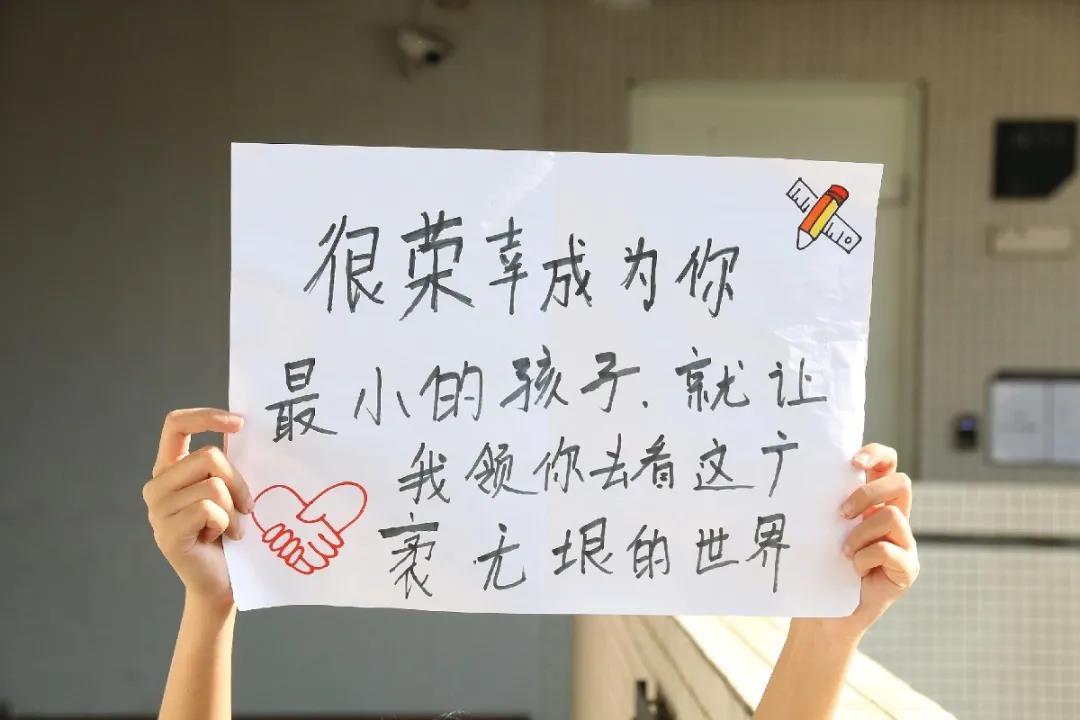 很荣幸成为你
最小的孩子、就让
我领你去看这广
袤无垠的世界